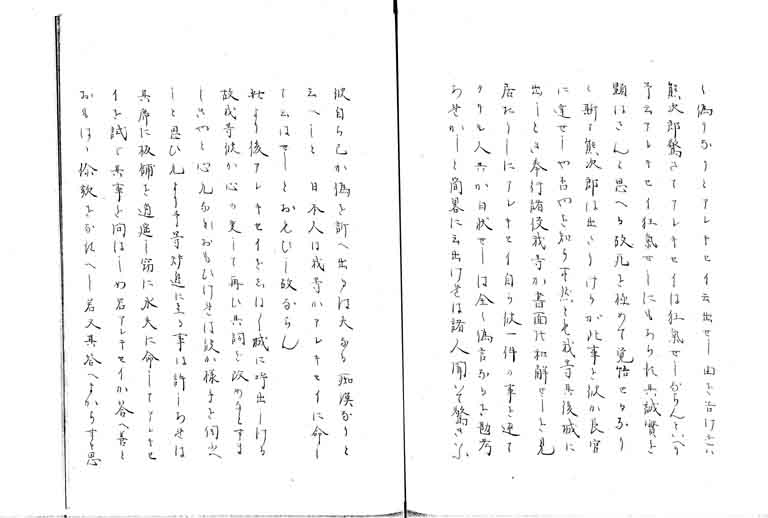 く偽りなりとアレキセイ云出せし由を告けれハ
熊次郎驚きてアレキセイは狂氣せしならんといへり
予云アレキセイ狂氣せしにもあられ其誠實を
顕はさんと思へる故死を極めて覚悟せるなり
と斯て熊次郎は出さりけるが此事を彼か長官
に達せしや否やを知らす然とも我等其後城に
出しとき奉行諸役我等か書面代和解せしとき見
居たりしにアレキセイ自ら彼一件の事を連て
クリル人共か白状せしは全く偽言なりを勘考
らせかしと簡畧に云出けれは諸人聞いて驚きぶ
彼自ら己か偽を訴へ出るは大なる痴漢なりと
云へしと 日本人は我等かアレキセイに命し
て云はせしとおもひし故ならん
此より後アレキセイをしはしハ城に呼出しける
故我等彼か心の変して再ひ其詞を改めもすま
しきやと心元なくおもひけれは彼か様子を伺ふへ
しと思ひ兄より予等炉邉に至る事は許しわせは
其席に板舗を逍遥し窃に水夫に命してアレキセ
イを試て其事を問はしめ若アレキセイか答へ善と
おもはゝ徐歓をなすへし若又其答へよからすと思